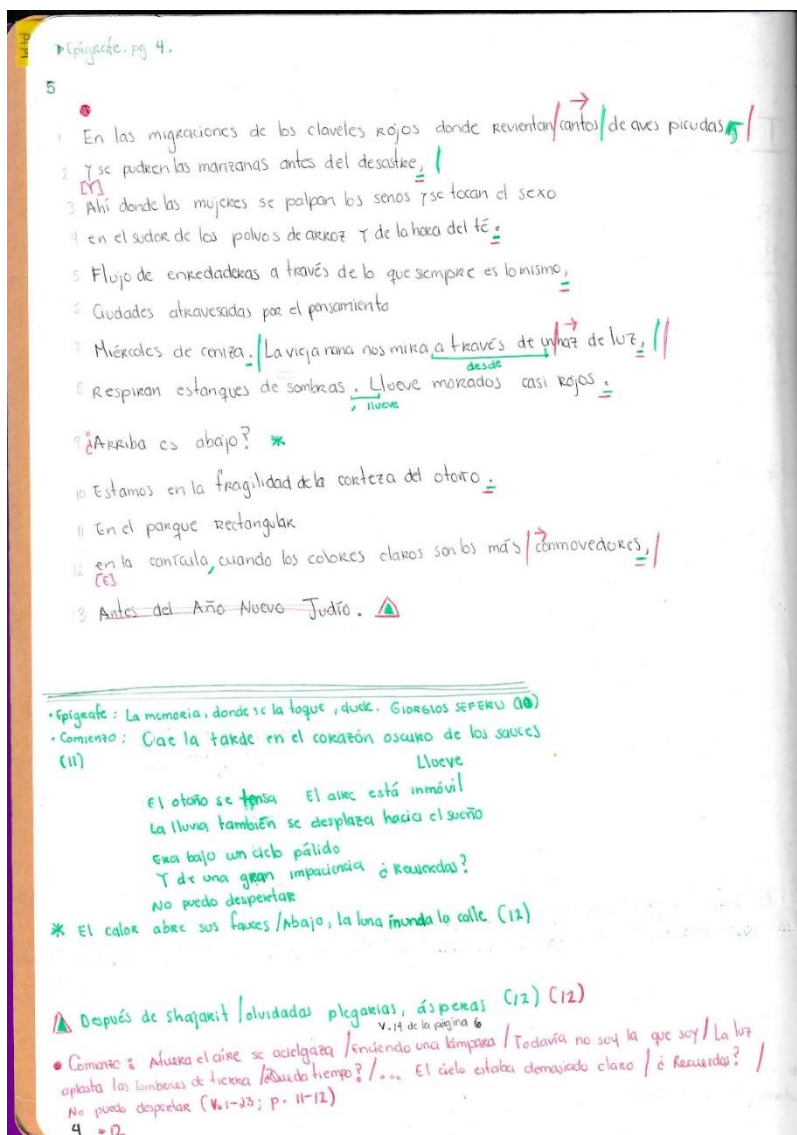 Epígrafe. pg 4.
5
1 En las migraciones de los claveles rojos donde revientan / cantos / de aves picudas, /
2 Y se pudren las manzanas antes del desastre, /
[Y]
3 Ahí donde las mujeres se palpan los senos y se tocan el sexo
4 en el sudor de los polvos de arroz y de la hora del té.
5 Flujo de enredaderas a través de lo que siempre es lo mismo,
6 Ciudades atravesadas por el pensamiento
7 Miércoles de ceniza. / La vieja nana nos mira a través de un / haz de luz, //
desde
8 Respiran estanques de sombras. Llueve morados casi rojos.
, llueve
9 ¿Arriba es abajo? *
10 Estamos en la fragilidad de la corteza del otoño.
11 En el parque rectangular
12 en la canícula, cuando los colores claros son los más / conmovedores, /
[E]
3 Antes del Año Nuevo Judío.
• Epígrafe: La memoria, donde se la toque, duele. GIORGIOS SEFERU (10)
• Comienzo: Cae la tarde en el corazón oscuro de los sauces
(11)
Llueve
El otoño se tensa El aire está inmóvil
La lluvia también se desplaza hacia el sueño
Era bajo un cielo pálido
Y de una gran impaciencia ¿Recuerdas?
No puedo despertar
* El calor abre sus fauces / Abajo, la luna inunda la calle (12)
Después de Shajarit / olvidadas plegarias, ásperas (12) (12)
V. 14 de la página 6
• Comienzo: Afuera el aire se acielgaza / Enciendo una lámpara / Todavía no soy la que soy / La luz
aplasta las lombrices de tierra / ¿Queda tiempo? / ... El cielo estaba demasiado claro / ¿Recuerdas? /
No puedo despertar (V. 1-23; p. 11-12)
4 • 12